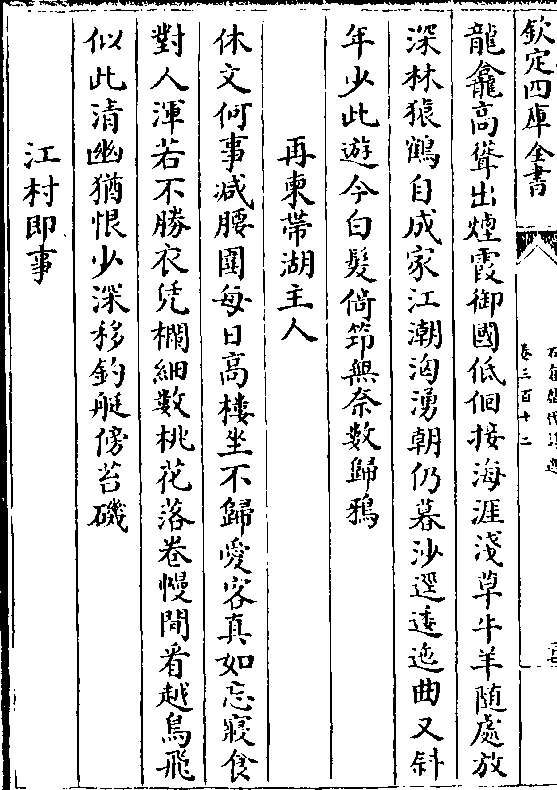 欽定四庫全書
卷三百十二
龍龕高聳出煙霞御國低佪接海涯淺草牛羊隨處放
深林猿鶴自成家江潮洶湧朝仍暮沙逕逶迤曲又斜
年少此遊今白髮倚筇無奈數歸鴉
再柬帶湖主人
休文何事减腰圍每日高樓坐不歸愛客真如忘寢食
對人渾若不勝衣凭欄細數桃花落卷幔閒看越鳥飛
似此清幽猶恨少深移釣艇傍苔磯
江村即事